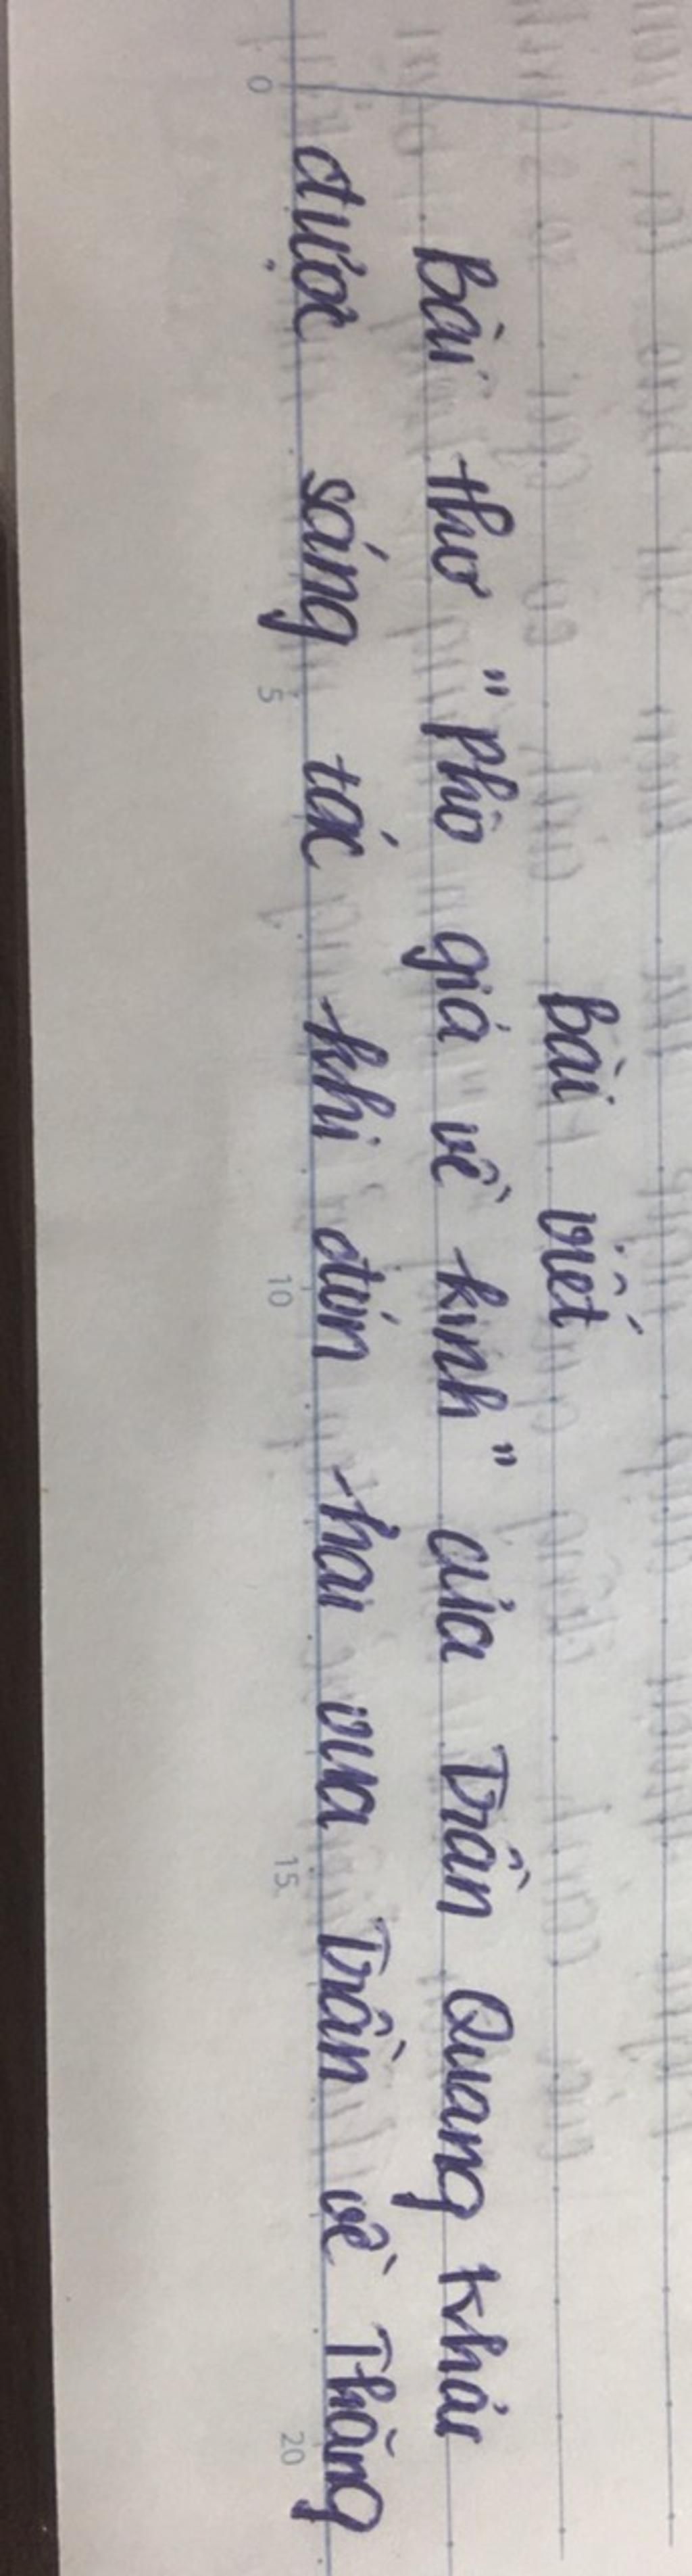 Bài viết
Bài thơ "Phò giá về kinh" của Trần Quang Khải
được sáng tác khi đón hai vua Trần về Thăng
0 5 10 15 20